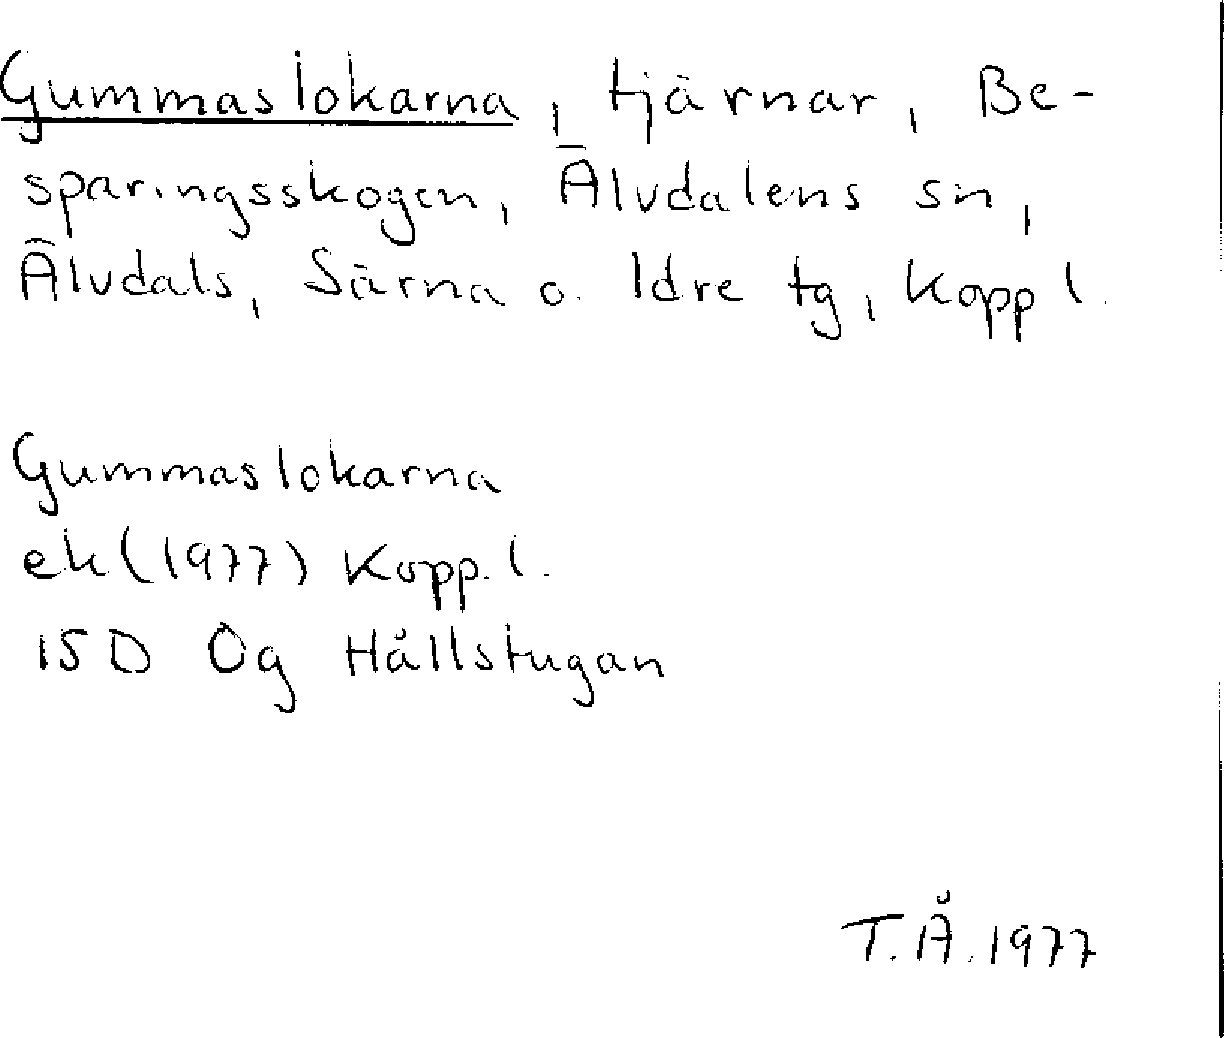 Gummaslokarna, tjärnar, Be-
sparingsskogen, Älvdalens sn,
Älvdals, Särna o. Idre tg, Kopp l.
Gummaslokarna
ek (1977) Kopp. l.
15D 0g Hållstugan
T.Å. 1977